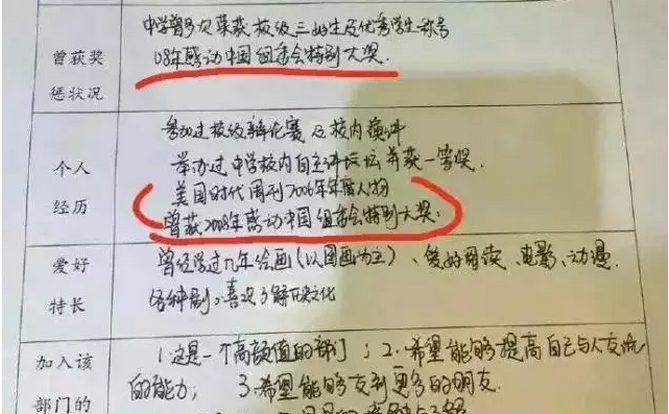 中学曾多次荣获校级三好生及优秀学生称号
曾获奖
08年感动中国组委会特别大奖.
惩状况
参加过校级辩论赛及校内演讲
个人
举办过中学校内自主讲坛并获一等奖.
经历
美国时代周刊2006年年度人物
曾获2008年感动中国组委会特别大奖.
爱好
曾经学过几年绘画(以国画为主)、爱好阅读、电影、动漫、
特长
各种剧,喜欢了解历史文化
加入该
1.这是一个高颜值的部门;2.希望能够提高自己与人交流
部门的
的能力; 3.希望能够交到更多的朋友.